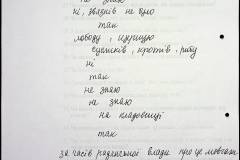 не знаю
ні, звлдків не було
так
лободу, щирицю
сусліків, кротів, рибу
ні
так
не знаю
не знаю
на кладовищі
так
за часів радянської влади про це мовчали